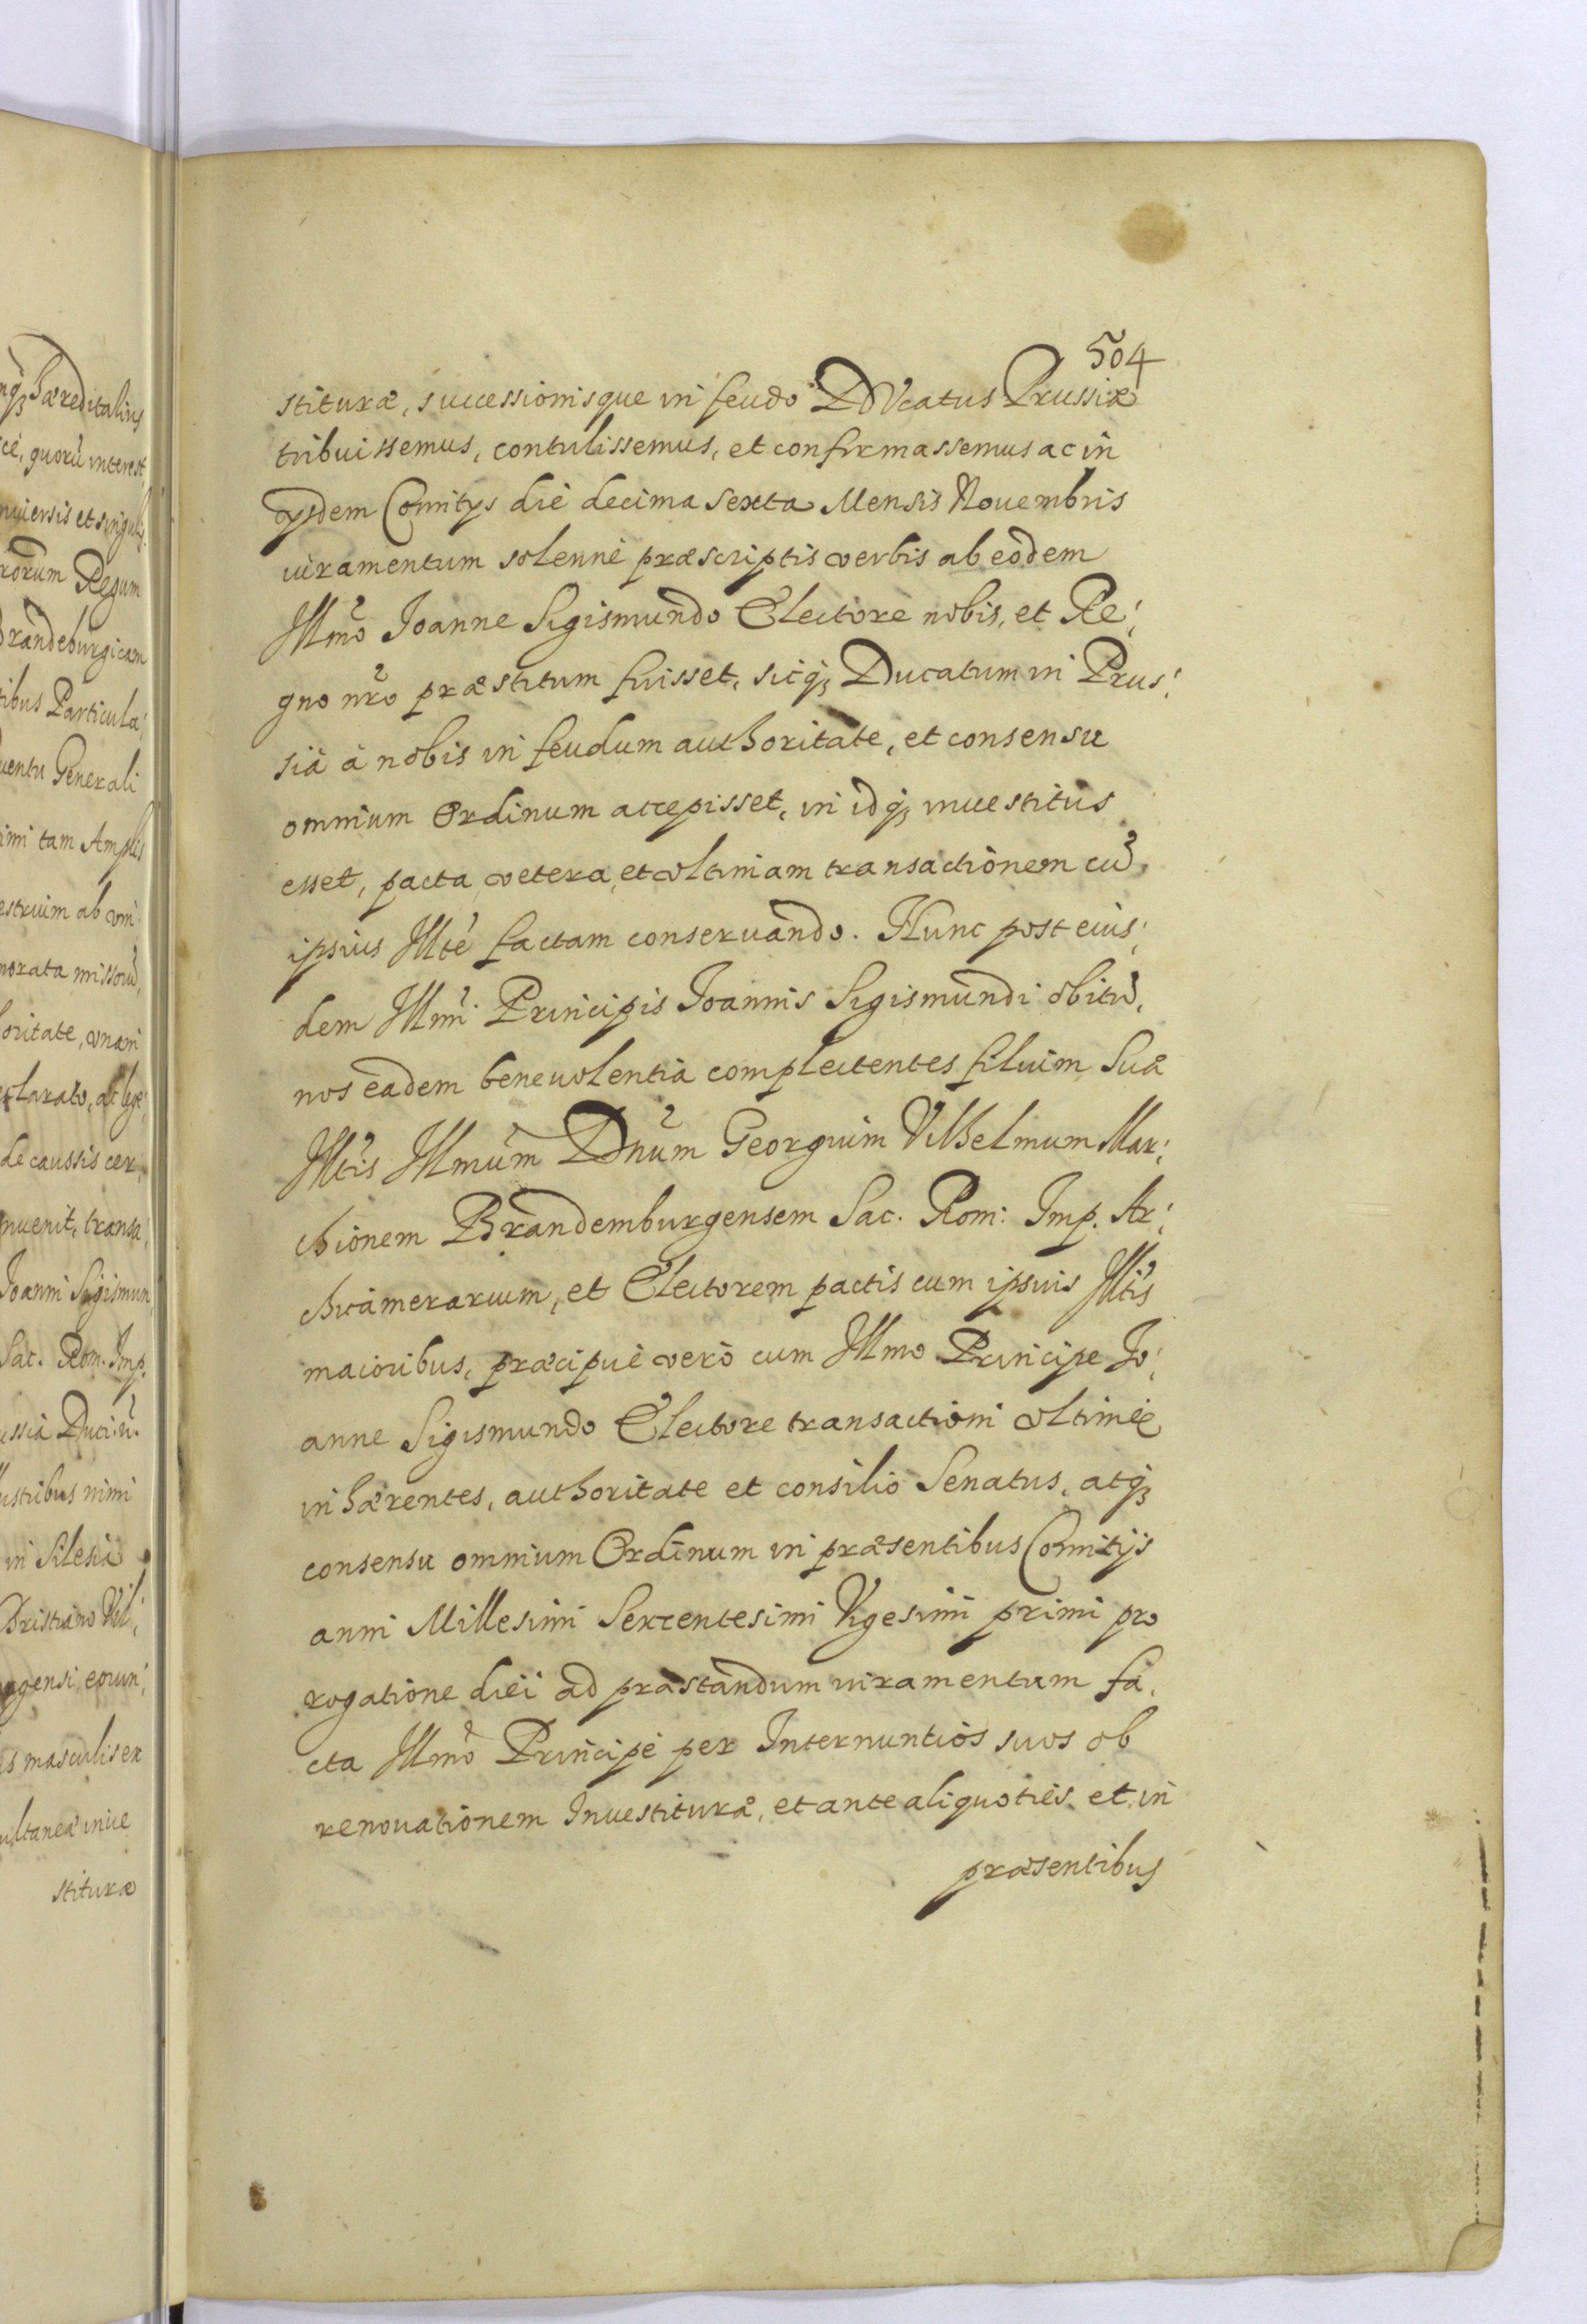 504
stituræ, successionisque in feudo DVcatus Prussiæ
tribuissemus, contulissemus, et confirmassemus ac in
ijsdem Comitijs die decima sexta Mensis Nouembris
iuramentum solenne præscriptis verbis ab eodem
Illmo Joanne Sigismundo Electore nobis, et Re:
gno nro præstitum fuisset, sicq; Ducatum in Prus:
sia à nobis in feudum authoritate, et consensu
omnium Ordinum accepisset, in idq; inuestitus
esset, pacta vetera, et vltimam transactionem cu
ipsius Illte factam conseruando. Hunc post eius:
dem Illmi Principis Joannis Sigismundi obitu,
nos eadem beneuolentia complectentes filium Suæ
Illtis Illmum Dnum Georgium Vilhelmum Mar:
chionem Brandemburgensem Sac. Rom: Imp. Ar:
chicamerarium, et Electorem pactis cum ipsius Illtis
maioribus, præcipuè verò cum Illmo Principe Jo:
anne Sigismundo Electore transactioni vltimæ
inhærentes, authoritate et consilio Senatus, atq;
consensu omnium Ordinum in præsentibus Comitijs
anni Millesimi Sexcentesimi Vigesimi primi pro
rogatione diei ad præstandum iuramentum fa:
cta Illmo Principe per Internuntios suos ob
renouationem Inuestituræ, et ante aliquoties et in
præsentibus
nq; hæreditalius
ce, quorũ interest
niuersis et singulis
rorum Regum
Brandeburgicam
tibus Particula:
uentu Generali
imi tam Amplis
estrium ab vni
morata missoru
horitate, vnani
clarato, ac lege
de caussis cer:
nuenit, transa:
Joanni Sigismun
Sac. Rom. Imp.
ussia Duci.
ustribus nimi
in Silesia
Christiano Vil:
gensi eorun:
is masculis ex
ultaneæ inue
stituræ